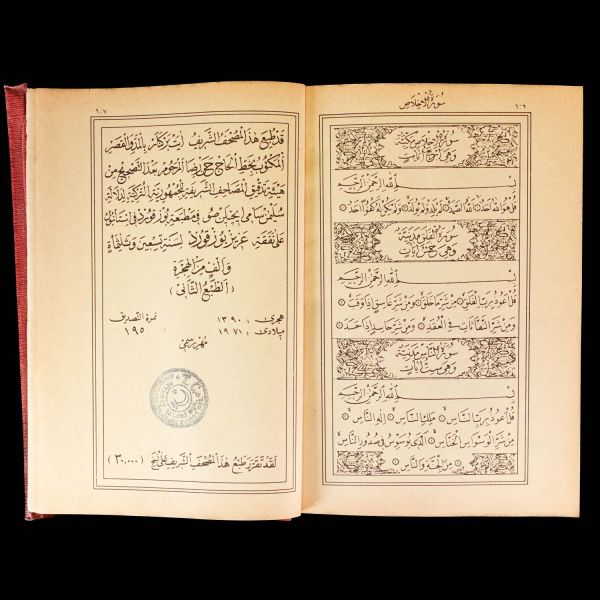 سورة الاخلاص
٦٠٦
سورة الاخلاص مكية
وهى اربع آيات
بسم الله الرحمن الرحيم
قل هو الله احد الله الصمد لم يلد ولم يولد ولم يكن له كفوا احد
سورة الفلق مدنية
وهى خمس آيات
بسم الله الرحمن الرحيم
قل اعوذ برب الفلق من شر ما خلق ومن شر غاسق اذا وقب
ومن شر النفاثات فى العقد ومن شر حاسد اذا حسد
سورة الناس مدنية
وهى ست آيات
بسم الله الرحمن الرحيم
قل اعوذ برب الناس ملك الناس اله الناس
من شر الوسواس الخناس الذى يوسوس فى صدور الناس
من الجنة والناس
٦٠٧
قد طبع هذا المصحف الشريف
المكتوب بخط الحاج حمدى رضا المرحوم بعد التصحيح من
هيئة تدقيق المصاحف الشريفة للجمهورية التركية لدلالة
سليمن سامى ايجبلن صوى ومطبعة يوز قورد فى استانبول
على نفقة عزيز بوز قورد لسنة تسعين وثلثمأة
والف من الهجرة
(الطبع الثانى)
هجرى : ١٣٩٠
نمرة التصديق
ميلادى : ١٩٧١
١٩٥
مهر رسمى
لقد تقرر طبع هذا المصحف الشريف على نسخ (٣٠,٠٠٠)